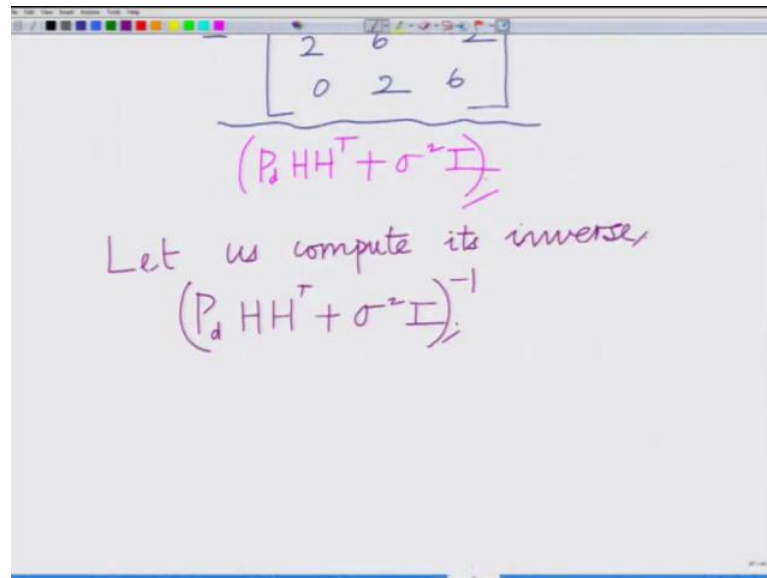 2 6 2
0 2 6
(P_d HH^T + σ² I)
Let us compute its inverse,
(P_d HH^T + σ² I)^{-1}